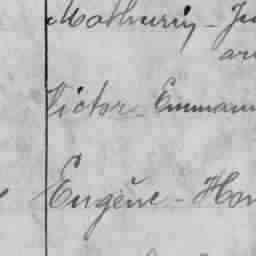 Mathurin - Ju
Victor - Emmanu
Eugène - Hon